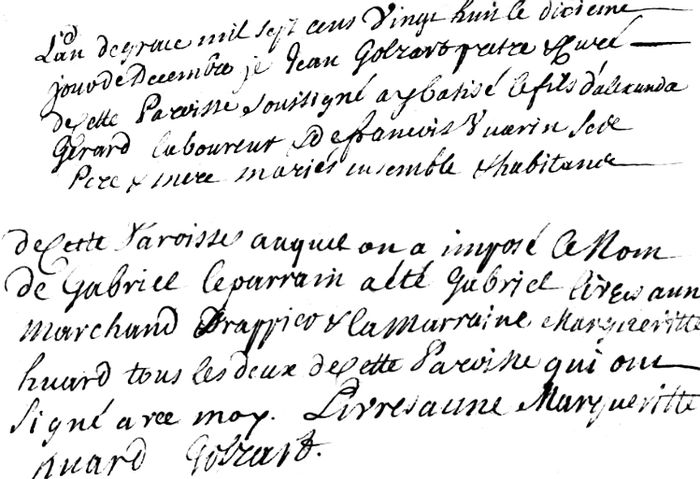 L'an de grace mil sept cens Vingt huit le dicieme
jour de Decembre je Jean Golzart pretre & Curé
de cette Paroisse soussigné ay batisé le fils d'alexandre
Gerard laboureur & de francois Vuarin ses
Pere & mere mariés ensemble & habitans
de Cette Paroisse auquel on a imposé le Nom
de Gabriel le parrain a été Gabriel
marchand Drappier & la Marraine Margueritte
huard tous les deux de Cette Paroisse qui ont
signé avec moy. Livresaune Margueritte
huard Golzart.